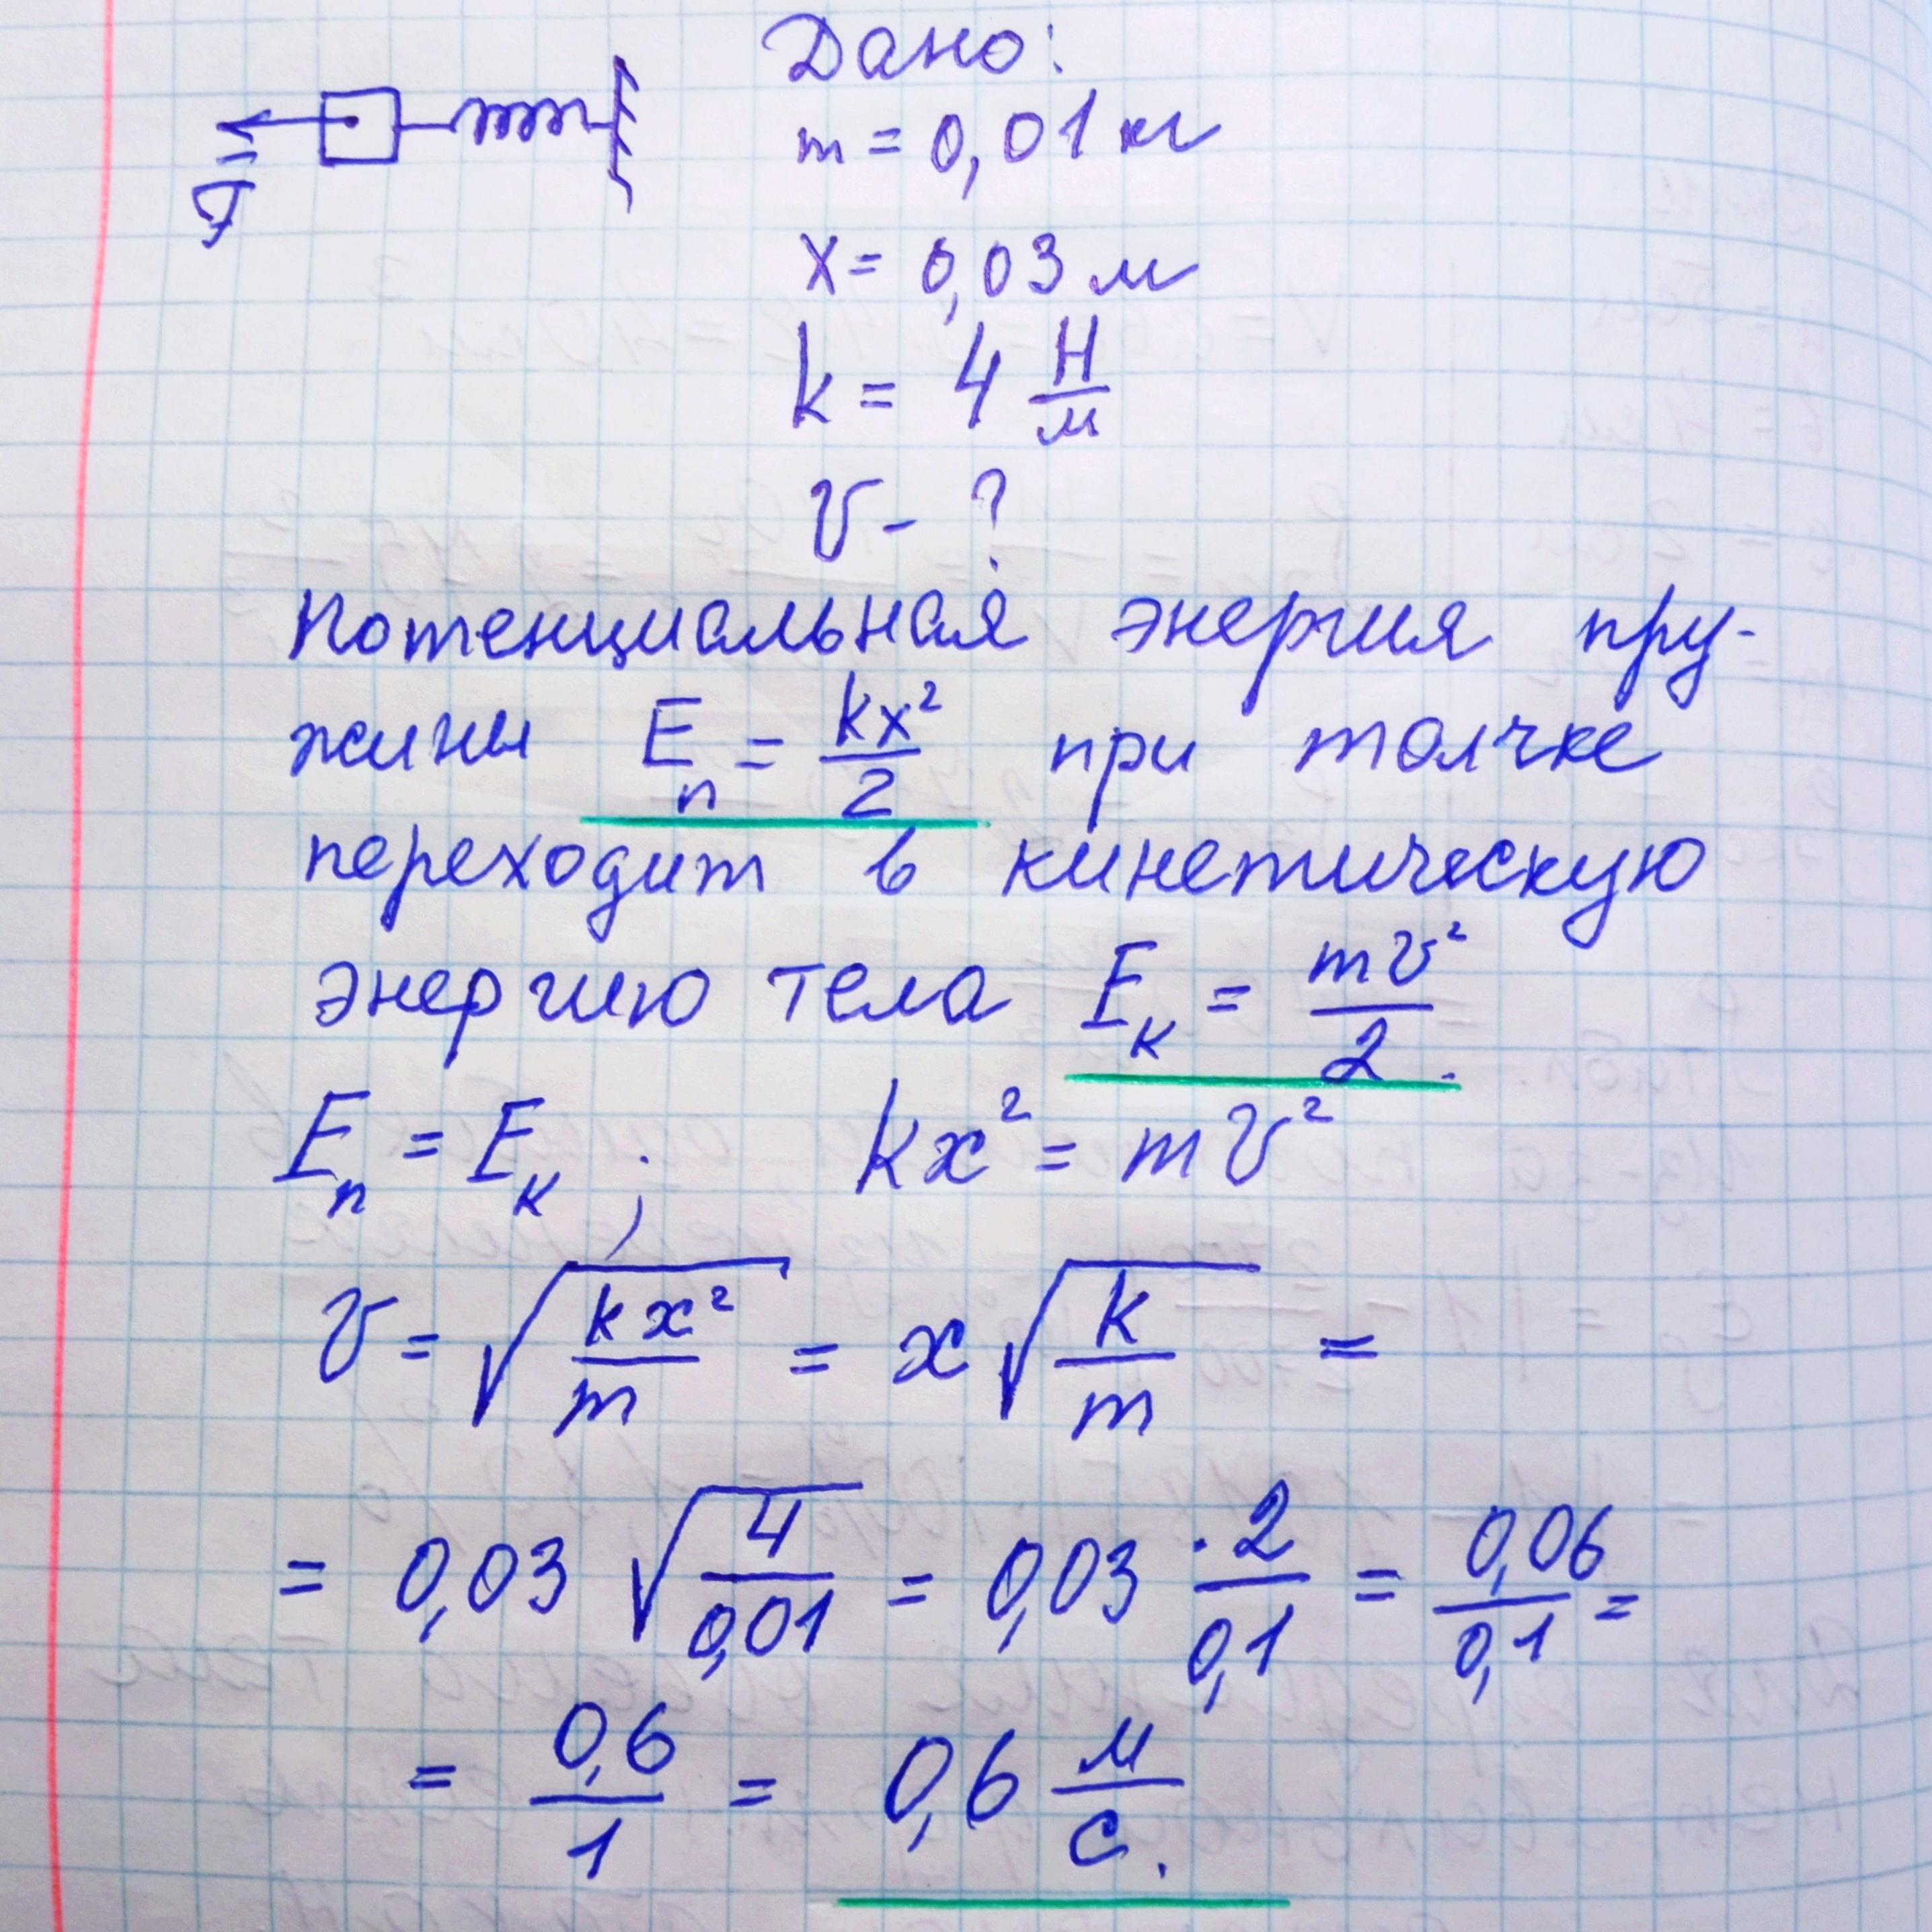 Дано:
m = 0,01 кг
F
x = 0,03 м
k = 4 Н/м
v - ?
Потенциальная энергия пру-
жины Eп = kx²/2 при толчке
переходит в кинетическую
энергию тела Eк = mv²/2.
Eп = Eк ; kx² = mv²
v = √(kx²/m) = x√(k/m) =
= 0,03 √(4/0,01) = 0,03 · 2/0,1 = 0,06/0,1 =
= 0,6/1 = 0,6 м/с.